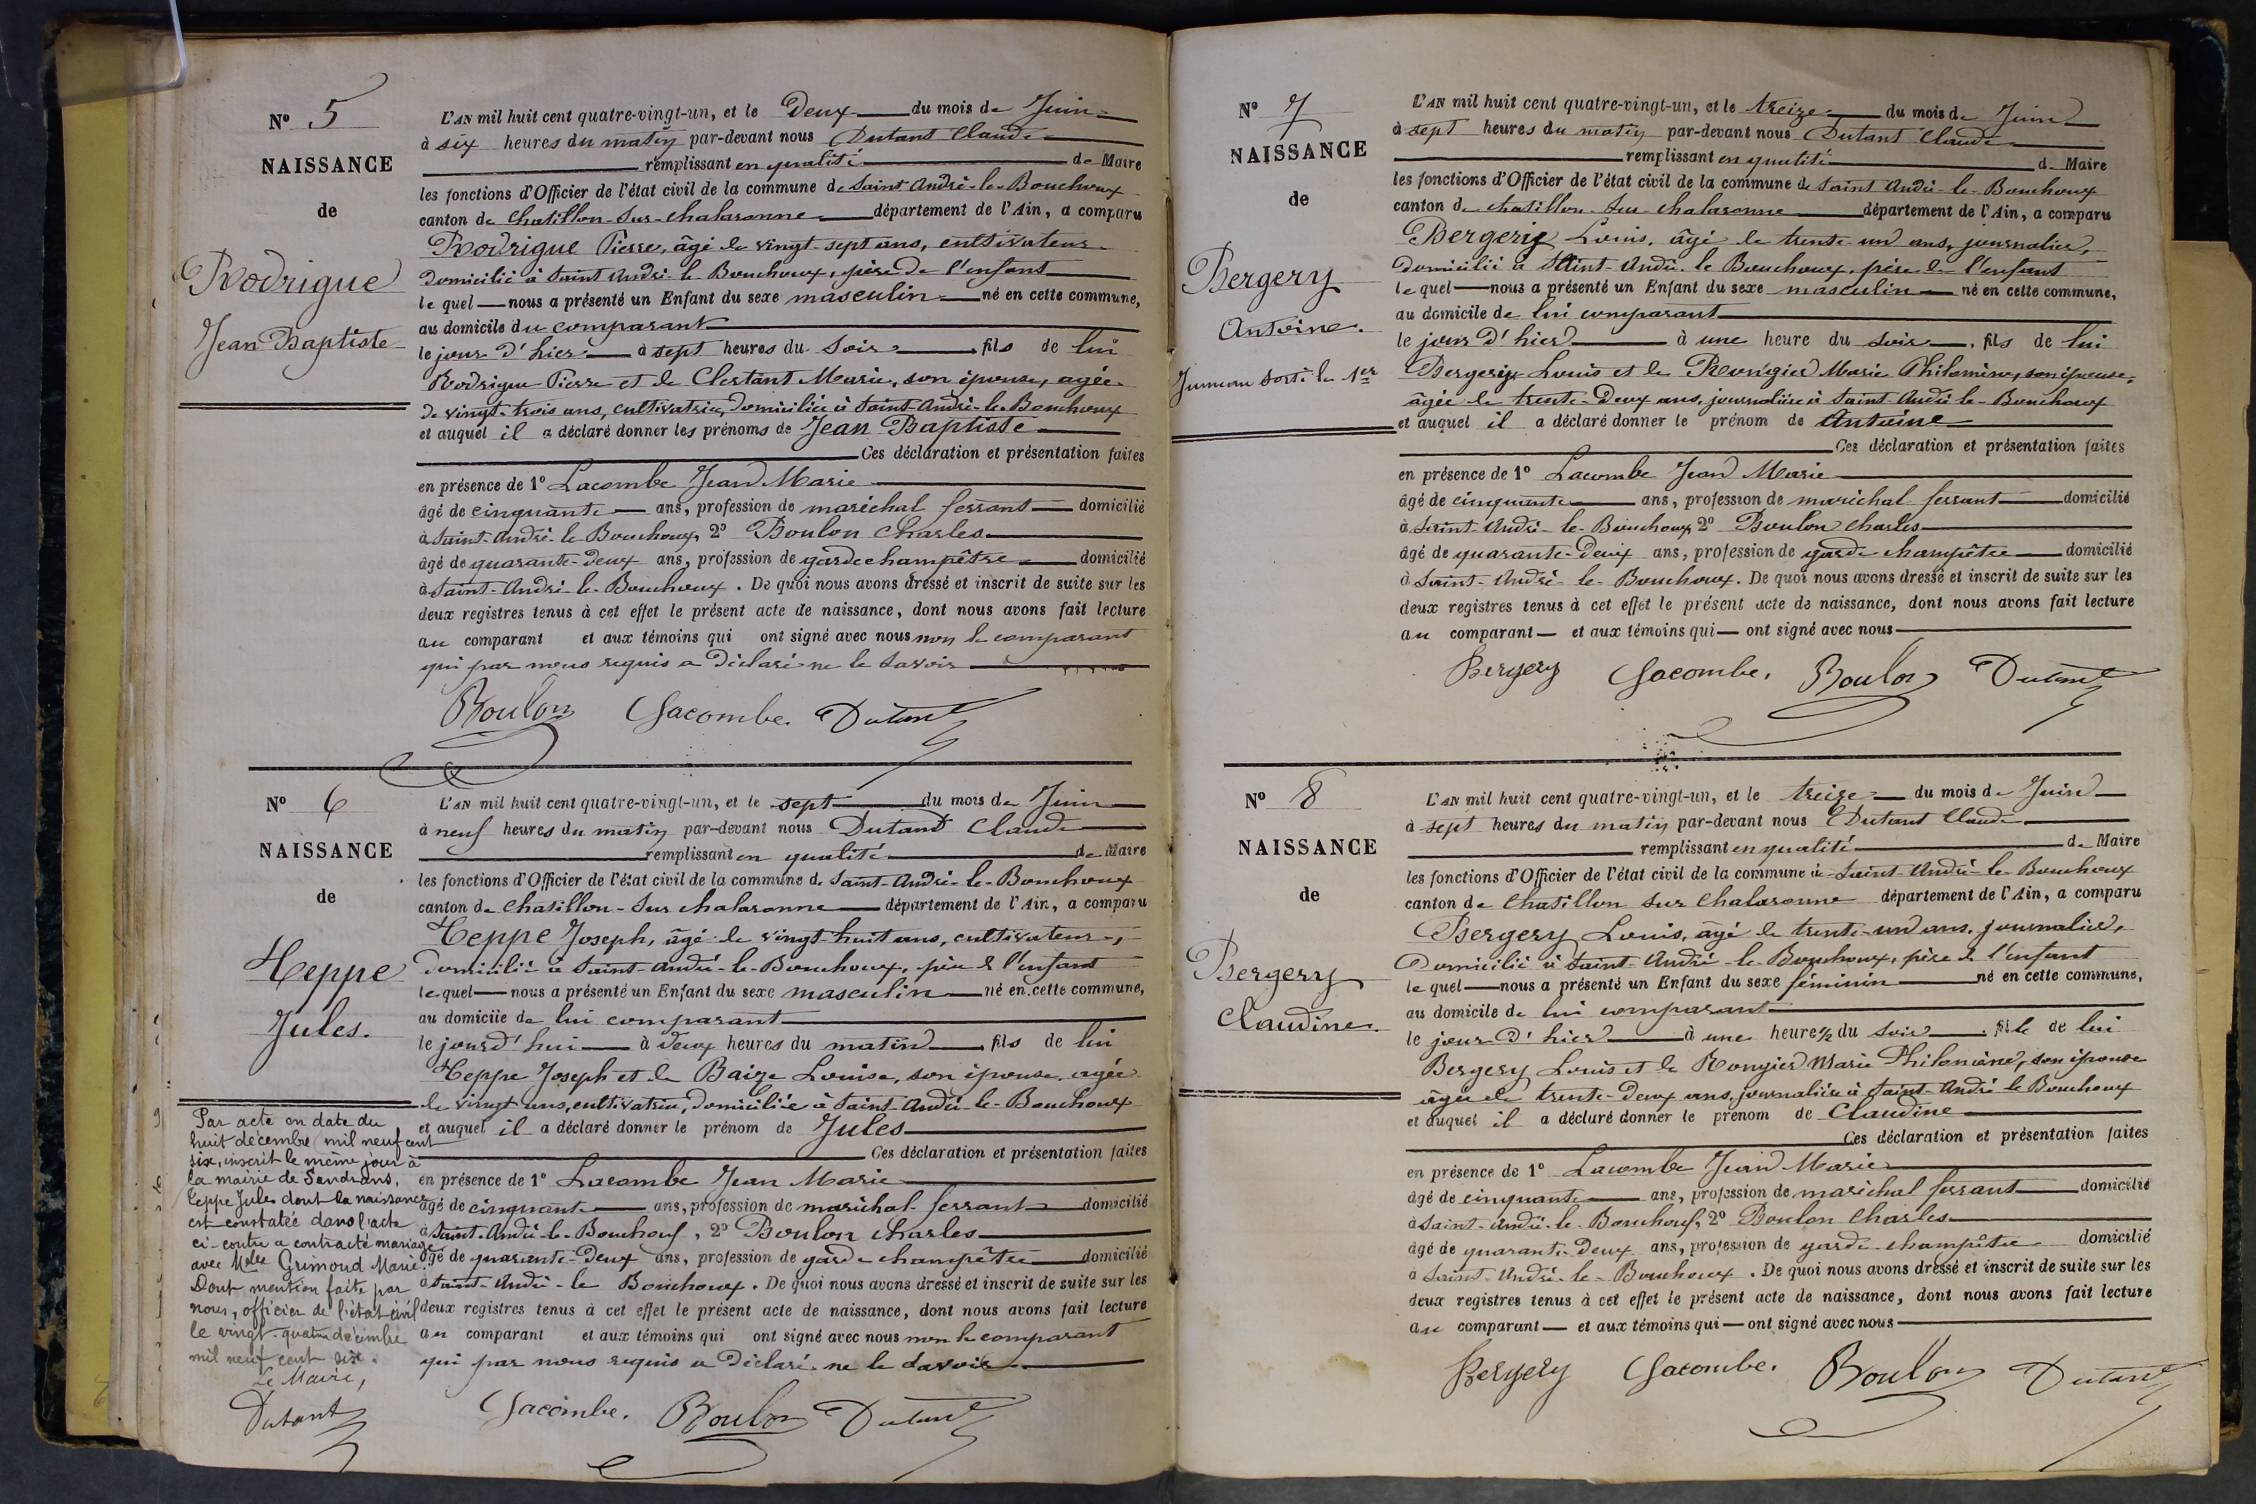 N° 5
NAISSANCE
de
Rodrigue
Jean Baptiste
L'AN mil huit cent quatre-vingt-un, et le Deux du mois de Juin
à six heures du matin par-devant nous Dutant Claude
remplissant en qualité de Maire
les fonctions d'Officier de l'état civil de la commune de Saint André-le-Bouchoux
canton de Chatillon-sur-Chalaronne département de l'Ain, a comparu
Rodrigue Pierre, âgé de vingt-sept ans, cultivateur
domicilié à Saint André-le-Bouchoux, père de l'enfant
le quel nous a présenté un Enfant du sexe masculin né en cette commune,
au domicile du comparant
le jour d'hier à sept heures du soir, fils de lui
Rodrigue Pierre et de Clertant Marie, son épouse, agée
de vingt-trois ans, cultivatrice, domiciliée à Saint-André-le-Bouchoux
et auquel il a déclaré donner les prénoms de Jean Baptiste
Ces déclaration et présentation faites
en présence de 1° Lacombe Jean Marie
âgé de cinquante ans, profession de maréchal ferrant domicilié
à Saint-André-le-Bouchoux, 2° Boulon Charles
âgé de quarante-deux ans, profession de garde champêtre domicilié
à Saint-André-le-Bouchoux. De quoi nous avons dressé et inscrit de suite sur les
deux registres tenus à cet effet le présent acte de naissance, dont nous avons fait lecture
au comparant et aux témoins qui ont signé avec nous non le comparant
qui par nous requis a déclaré ne le savoir
Boulon Lacombe. Dutant
N° 6
NAISSANCE
de
Heppe
Jules.
L'AN mil huit cent quatre-vingt-un, et le sept du mois de Juin
à neuf heures du matin par-devant nous Dutant Claude
remplissant en qualité de Maire
les fonctions d'Officier de l'état civil de la commune de Saint-André-le-Bouchoux
canton de Chatillon-sur Chalaronne département de l'Ain, a comparu
Heppe Joseph, âgé de vingt-huit ans, cultivateur,
domicilié à Saint-André-le-Bouchoux, père de l'enfant
lequel nous a présenté un Enfant du sexe masculin né en cette commune,
au domicile de lui comparant
le jourd'hui à deux heures du matin, fils de lui
Heppe Joseph et de Baize Louise, son épouse, agée
de vingt ans, cultivatrice, domiciliée à Saint-André-le-Bouchoux
et auquel il a déclaré donner le prénom de Jules
Ces déclaration et présentation faites
en présence de 1° Lacombe Jean Marie
âgé de cinquante ans, profession de maréchal-ferrant domicilié
à Saint-André-le-Bouchoux, 2° Boulon Charles
âgé de quarante-deux ans, profession de garde champêtre domicilié
à Saint-André-le Bouchoux. De quoi nous avons dressé et inscrit de suite sur les
deux registres tenus à cet effet le présent acte de naissance, dont nous avons fait lecture
au comparant et aux témoins qui ont signé avec nous non le comparant
qui par nous requis a déclaré ne le savoir
Lacombe. Boulon Dutant
Par acte en date du
huit décembre mil neuf cent
six, inscrit le même jour à
la mairie de Sandrans,
Heppe Jules dont la naissance
est constatée dans l'acte
ci-contre a contracté mariage
avec Melle Grimoud Marie.
Dont mention faite par
nous, officier de l'état civil
le vingt-quatre décembre
mil neuf cent six.
Le Maire,
Dutant
N° 7
NAISSANCE
de
Bergery
Antoine.
Jumeau sorti le 1er
L'AN mil huit cent quatre-vingt-un, et le treize du mois de Juin
à sept heures du matin par-devant nous Dutant Claude
remplissant en qualité de Maire
les fonctions d'Officier de l'état civil de la commune de Saint André-le-Bouchoux
canton de Chatillon-sur-Chalaronne département de l'Ain, a comparu
Bergery Louis, âgé de trente-un ans, journalier,
domicilié à Saint-André-le Bouchoux, père de l'enfant
le quel nous a présenté un Enfant du sexe masculin né en cette commune,
au domicile de lui comparant
le jour d'hier à une heure du soir, fils de lui
Bergery Louis et de Rongier Marie Philomène, son épouse,
âgée de trente-deux ans, journalière à Saint André-le-Bouchoux
et auquel il a déclaré donner le prénom de Antoine
Ces déclaration et présentation faites
en présence de 1° Lacombe Jean Marie
âgé de cinquante ans, profession de maréchal ferrant domicilié
à Saint-André-le-Bouchoux 2° Boulon Charles
âgé de quarante-deux ans, profession de garde champêtre domicilié
à Saint-André-le-Bouchoux. De quoi nous avons dressé et inscrit de suite sur les
deux registres tenus à cet effet le présent acte de naissance, dont nous avons fait lecture
au comparant et aux témoins qui ont signé avec nous
Bergery Lacombe. Boulon Dutant
N° 8
NAISSANCE
de
Bergery
Claudine.
L'AN mil huit cent quatre-vingt-un, et le treize du mois de Juin
à sept heures du matin par-devant nous Dutant Claude
remplissant en qualité de Maire
les fonctions d'Officier de l'état civil de la commune de Saint-André-le-Bouchoux
canton de Chatillon sur Chalaronne département de l'Ain, a comparu
Bergery Louis, âgé de trente-un ans, journalier,
domicilié à Saint-André-le-Bouchoux, père de l'enfant
le quel nous a présenté un Enfant du sexe féminin né en cette commune,
au domicile de lui comparant
le jour d'hier à une heure ½ du soir, fille de lui
Bergery Louis et de Rongier Marie Philomène, son épouse
âgée de trente-deux ans, journalière à Saint-André-le Bouchoux
et auquel il a déclaré donner le prénom de Claudine
Ces déclaration et présentation faites
en présence de 1° Lacombe Jean Marie
âgé de cinquante ans, profession de maréchal ferrant domicilié
à Saint-André-le-Bouchoux, 2° Boulon Charles
âgé de quarante-deux ans, profession de garde-champêtre domicilié
à Saint-André-le-Bouchoux. De quoi nous avons dressé et inscrit de suite sur les
deux registres tenus à cet effet le présent acte de naissance, dont nous avons fait lecture
au comparant et aux témoins qui ont signé avec nous
Bergery Lacombe. Boulon Dutant